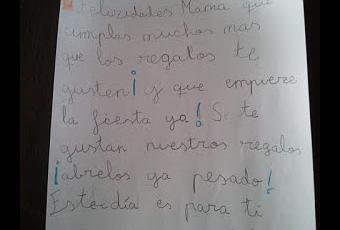 Felizidades Mama que
cumplas muchos mas
que los regalos te
gusten¡ y que empieze
la fiesta ya! Si te
gustan nuestros regalos
¡abrelos ya pesado!
Este día es para ti